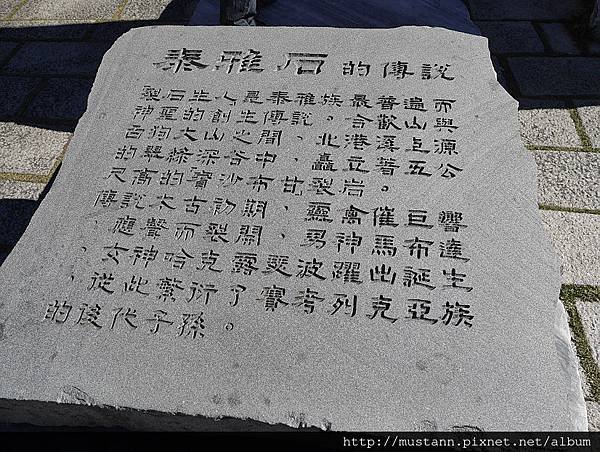 泰雅石的傳說
裂石生人是泰雅族最普遍而
神聖的創生傳說。合歡山與
百狗大山之間、北港溪上源
的翠綠深谷中、矗立著五公
尺高的賓沙布甘裂岩。
傳說太古初期、靈禽催巨響
、應聲而裂開、男神馬布達
、女神哈克露斐波躍出誕生
、從此繁衍了賽考列克亞族
的後代子孫。
http://mustann.pixnet.net/album